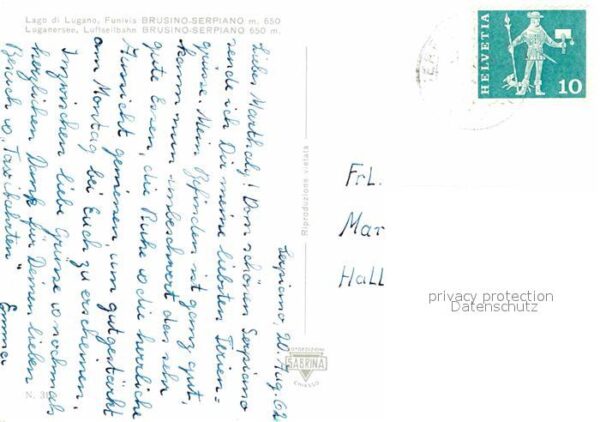 Lago di Lugano, Funivia BRUSINO-SERPIANO m. 650
Luganersee, Luftseilbahn BRUSINO-SERPIANO 650 m.
Serpiano, 20. Aug. 62
Liebes Marthaly! Vom schönen Serpiano
sende ich Dir meine liebsten Ferien-
grüsse. Mein Befinden ist ganz gut,
kann nun unbeschwert das sehr
gute Essen, die Ruhe u die herrliche
Aussicht geniessen, um gut gestärkt
am Montag bei Euch zu erscheinen.
Inzwischen liebe Grüsse u nochmals
herzlichen Dank für Deinen lieben
Besuch u. "Taxifahrten" Emma
N. 39
Riproduzione vietata
FOTOEDIZIONI
SABRINA
CHIASSO
HELVETIA
10
Frl.
Mar
Hall
privacy protection
Datenschutz